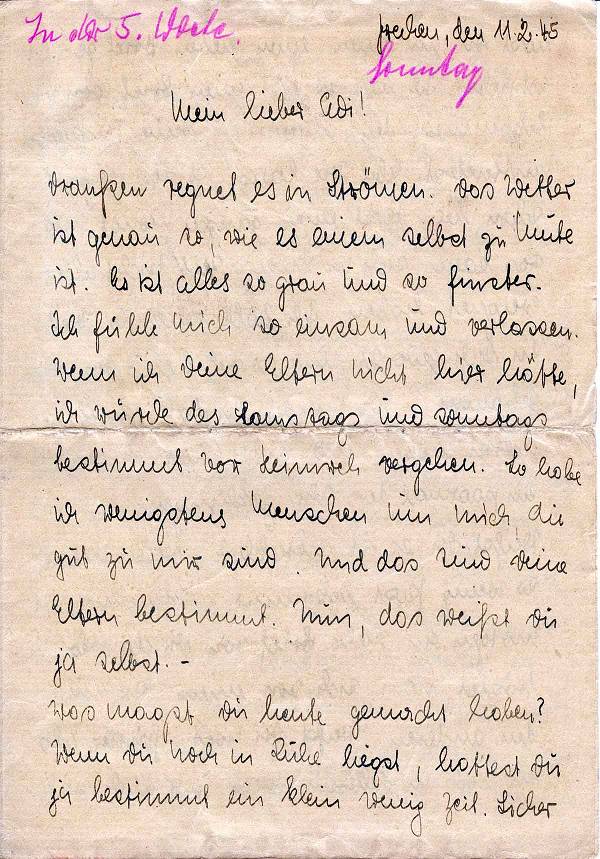 In der 5. Woche.
Frechen, den 11.2.45
Sonntag
Mein lieber Edi!
Draußen regnet es in Strömen. Das Wetter
ist genau so, wie es einem selbst zu Mute
ist. Es ist alles so grau und so finster.
Ich fühle mich so einsam und verlassen.
Wenn ich deine Eltern nicht hier hätte,
ich würde des Samstags und Sonntags
bestimmt vor Heimweh vergehen. So habe
ich wenigstens Menschen um mich, die
gut zu mir sind. Und das sind deine
Eltern bestimmt. Nun, das weißt du
ja selbst. -
Was magst du heute gemacht haben?
Wenn du noch in Ruhe liegst, hattest du
ja bestimmt ein klein wenig Zeit. Sicher